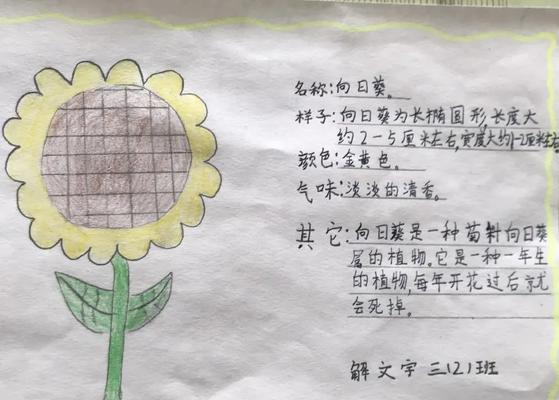 名称:向日葵。
样子:向日葵为长椭圆形,长度大
约2一5厘米左右,宽度大约1-2厘米左右
颜色:金黄色。
气味:淡淡的清香。
其它:向日葵是一种菊科向日葵
属的植物,它是一种一年生
的植物,每年开花过后就
会死掉。
解文宇三(2)班